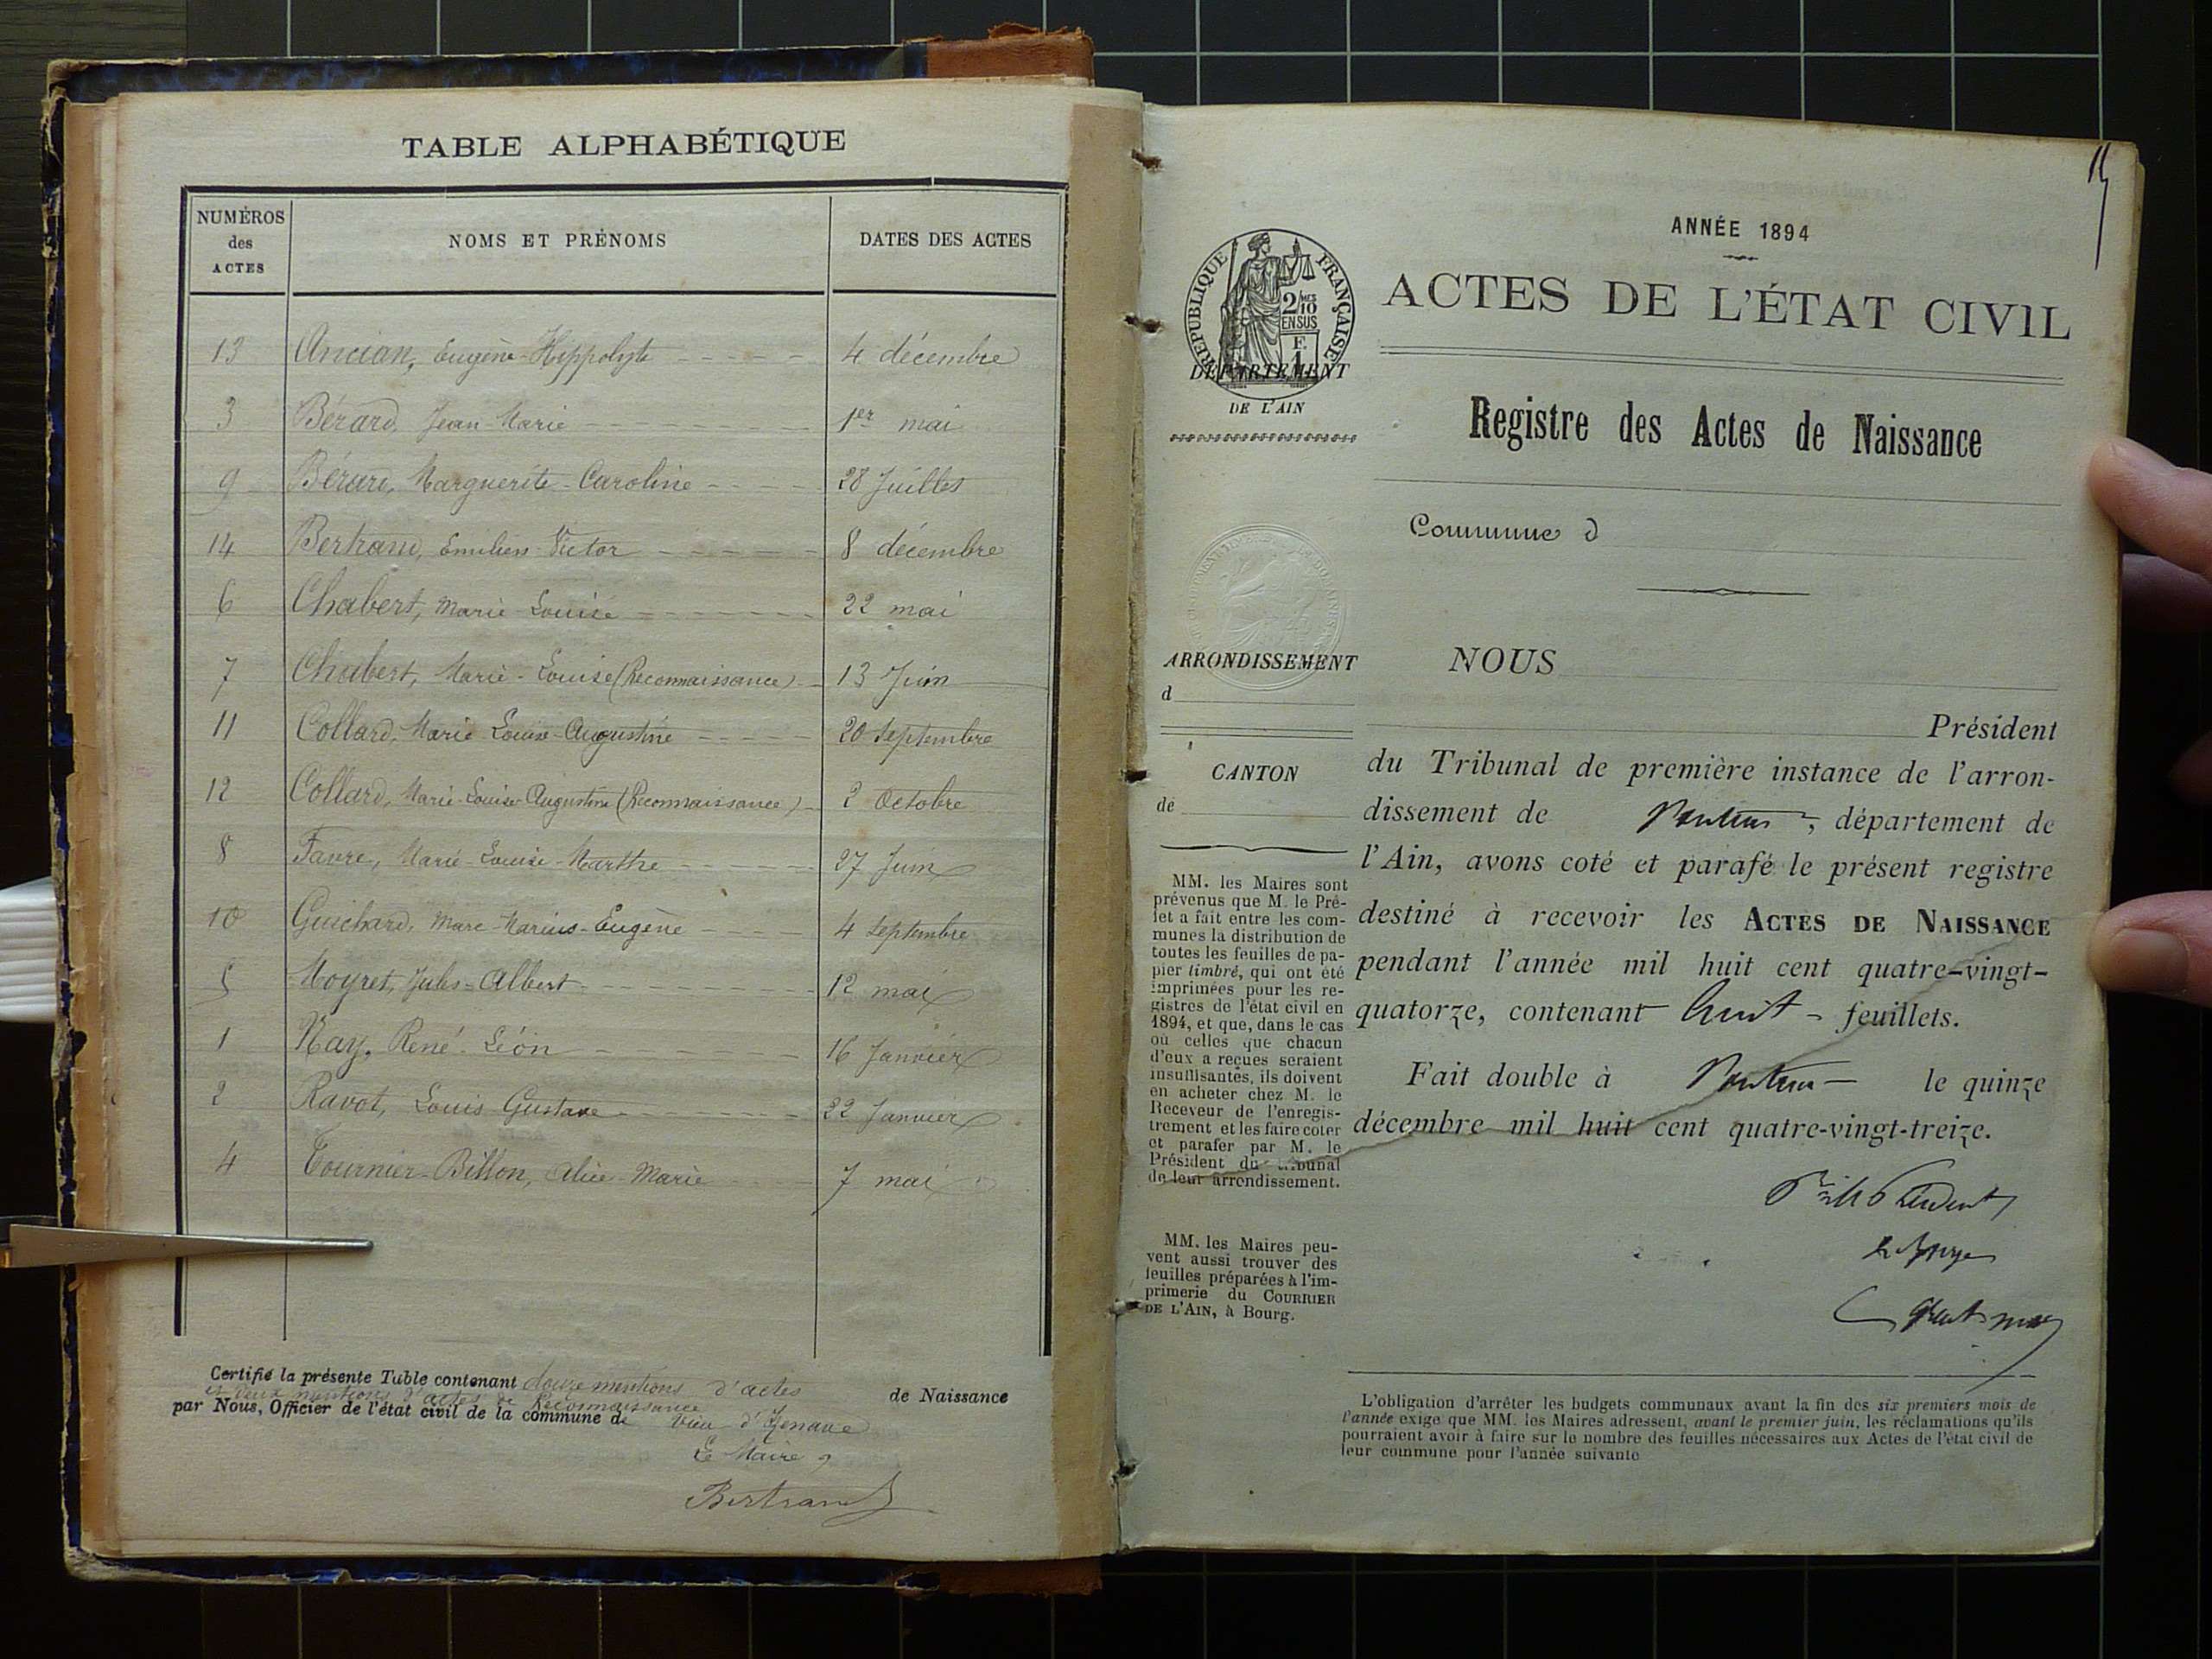 TABLE ALPHABÉTIQUE
NUMÉROS des ACTES
NOMS ET PRÉNOMS
DATES DES ACTES
13 Ancian, Eugène-Hippolyte 4 décembre
3 Bérard, Jean-Marie 1er mai
9 Bérard, Marguerite-Caroline 28 Juillet
14 Bertrand, Emilien-Victor 8 décembre
6 Chabert, Marie-Louise 22 mai
7 Chabert, Marie-Louise (Reconnaissance) 13 Juin
11 Collard, Marie Louise-Augustine 20 Septembre
12 Collard, Marie-Louise Augustine (Reconnaissance) 2 Octobre
8 Favre, Marie-Louise-Marthe 27 Juin
10 Guichard, Marc-Marius-Eugène 4 Septembre
5 Moyret, Jules-Albert 12 mai
1 Nay, René-Léon 16 Janvier
2 Ravot, Louis Gustave 22 Janvier
4 Tournier-Billon, Alice-Marie 7 mai
Certifié la présente Table contenant douze mentions d'actes de Naissance
et deux mentions d'actes de Reconnaissance
par Nous, Officier de l'état civil de la commune de Vieu d'Izenave
Le Maire
Bertrand
ANNÉE 1894
ACTES DE L'ÉTAT CIVIL
RÉPUBLIQUE FRANÇAISE
2/10
EN SUS
F.
1
DÉPARTEMENT
DE L'AIN
Registre des Actes de Naissance
Commune d
ARRONDISSEMENT
d
CANTON
de
NOUS
Président
du Tribunal de première instance de l'arron-
dissement de Nantua, département de
l'Ain, avons coté et parafé le présent registre
destiné à recevoir les ACTES DE NAISSANCE
pendant l'année mil huit cent quatre-vingt-
quatorze, contenant huit feuillets.
Fait double à Nantua le quinze
décembre mil huit cent quatre-vingt-treize.
MM. les Maires sont
prévenus que M. le Pré-
fet a fait entre les com-
munes la distribution de
toutes les feuilles de pa-
pier timbré, qui ont été
imprimées pour les re-
gistres de l'état civil en
1894, et que, dans le cas
où celles que chacun
d'eux a reçues seraient
insuffisantes, ils doivent
en acheter chez M. le
Receveur de l'enregis-
trement et les faire coter
et parafer par M. le
Président du tribunal
de leur arrondissement.
MM. les Maires peu-
vent aussi trouver des
feuilles préparées à l'im-
primerie du COURRIER
DE L'AIN, à Bourg.
L'obligation d'arrêter les budgets communaux avant la fin des six premiers mois de
l'année exige que MM. les Maires adressent, avant le premier juin, les réclamations qu'ils
pourraient avoir à faire sur le nombre des feuilles nécessaires aux Actes de l'état civil de
leur commune pour l'année suivante